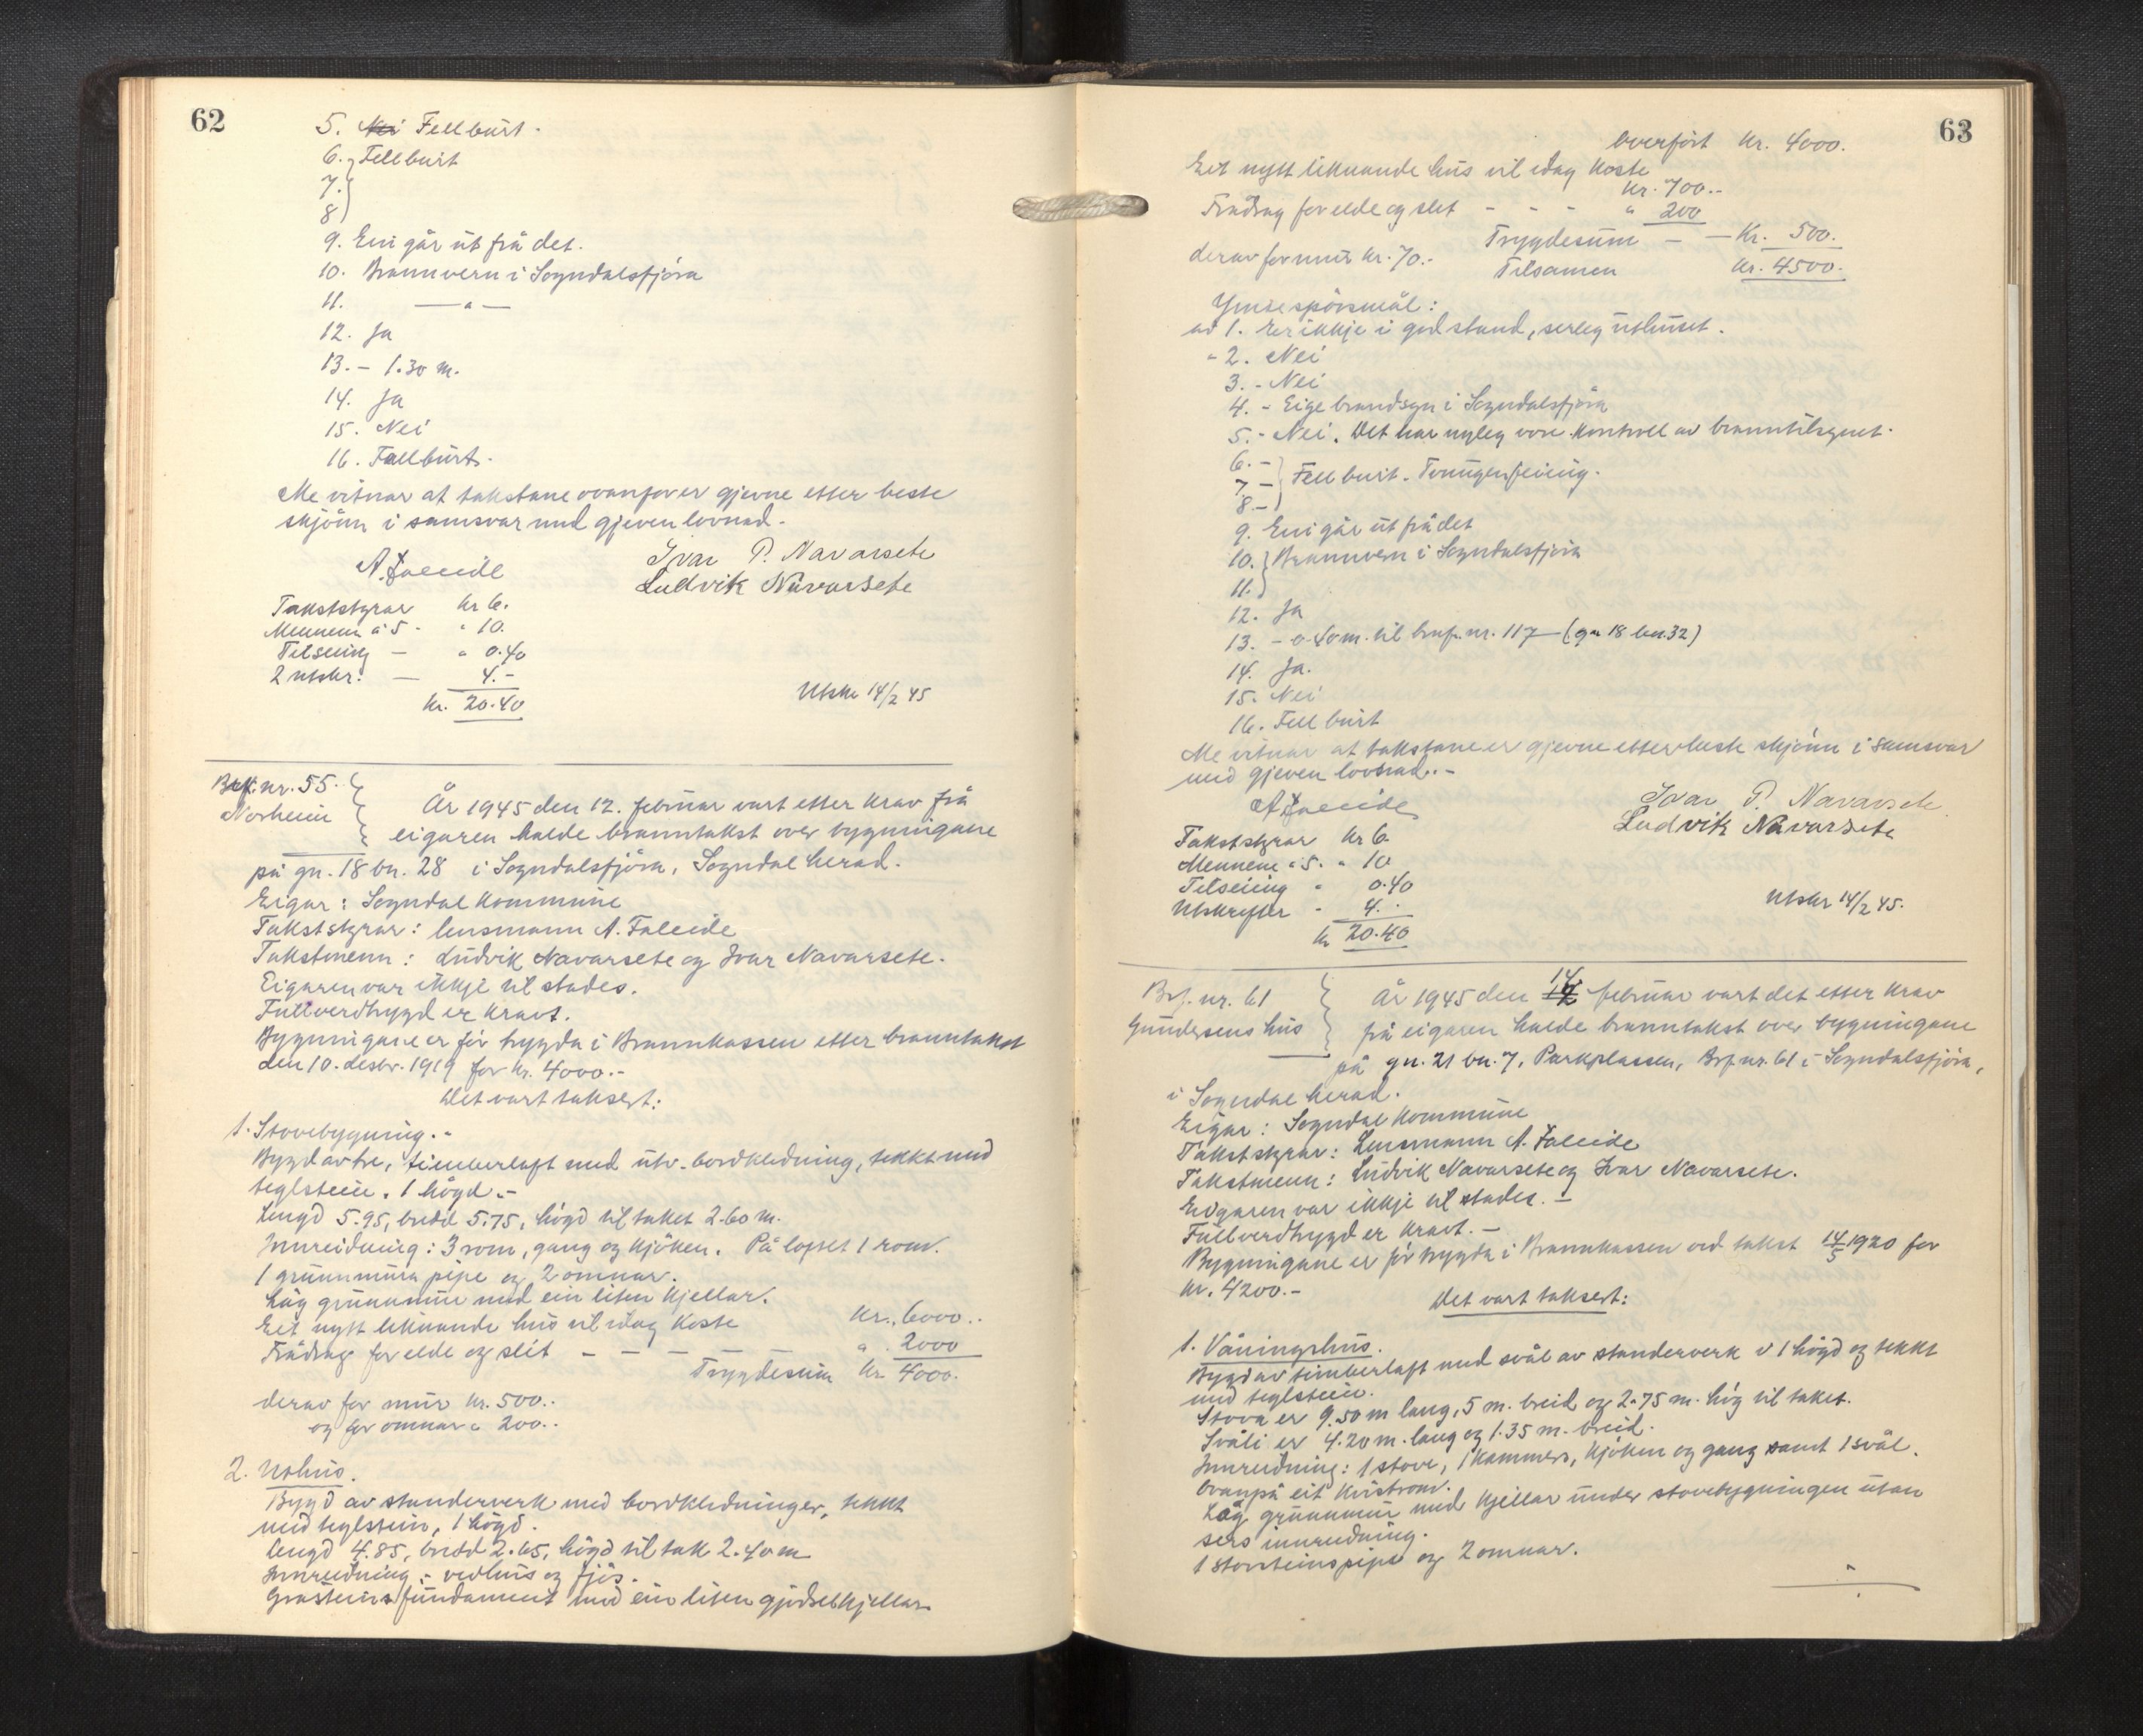 62
5. Nei Fell burt.
6. Fell burt
7.
8
9. Ein går ut frå det.
10. Brannvern i Sogndalsfjøra
11. — " —
12. Ja
13. - 1.30 m.
14. Ja
15. Nei
16. Fall burt.
Me vitnar at takstane ovanfor er gjevne etter beste
skjønn i samsvar med gjeven lovnad.
A. Faleide
Ivar P. Navarsete
Ludvik Navarsete
Takststyrar kr 6.
Mennene á 5. " 10.
Tilseiing — " 0.40
2 utskr. — 4.-
Kr. 20.40
Utskr 14/2 45
Brf. nr. 55.
Norheim
År 1945 den 12. februar vart etter krav frå
eigaren halde branntakst over bygningane
på gn. 18 bn. 28 i Sogndalsfjøra, Sogndal herad.
Eigar: Sogndal kommune
Takststyrar: lensmann A. Faleide
Takstmenn: Ludvik Navarsete og Ivar Navarsete.
Eigaren var ikkje til stades.
Fullverdtrygd er kravt.
Bygningane er før trygda i Brannkassen etter branntakst
den 10. desbr. 1919 for kr. 4000.-
Det vart taksert:
1. Stovebygning.-
Bygd av tre, timberlaft med utv. bordkledning, tekkt med
teglstein. 1 høgd.-
Lengd 5.95, breidd 5.75, høgd til taket 2.60 m.
Innreidning: 3 rom, gang og kjøken. På loftet 1 rom.
1 grunnmura pipe og 2 omnar.
Låg grunnmur med ein liten kjellar.
Eit nytt liknande hus vil idag koste kr. 6000..
Frådrag for elde og slit - - - - " 2000
Trygdesum kr 4000.
derav for mur kr. 500..
og for omnar " 200..
2. Uthus.
Bygd av standerverk med bordkledninger, tekkt
med teglstein, 1 høgd.
Lengd 4.85, breidd 2.65, høgd til tak 2.40 m
Innreidning: vedhus og fjøs.
Gråsteinsfundament med ein liten gjødselkjellar
63
Overført kr. 4000.
Eit nytt liknande hus vil idag koste
kr. 700.-
Frådrag for elde og slit - - - " 200
Trygdesum - - Kr. 500.
derav for mur kr. 70.-
Tilsamen kr. 4500.
Ymse spørsmål:
ad 1. Er ikkje i god stand, serleg uthuset.
" 2. Nei
3. - Nei
4. - Eige brandsyn i Sogndalsfjøra
5. - Nei. Det har nyleg vore kontroll av branntilsynet.
6. -
7 - Fell burt. Tvungen feiing.
8. -
9. Ein går ut frå det
10. Brannvern i Sogndalsfjøra
11.
12. Ja
13. - 0.40 m. til brnf. nr. 117 - (gn 18 bn. 32)
14. Ja.
15. Nei
16. Fell burt
Me vitnar at takstane er gjevne etter beste skjønn i samsvar
med gjeven lovnad..-
A Faleide
Ivar P. Navarsete
Ludvik Navarsete
Takststyrar kr 6.
Mennene á 5. " 10
Tilseiing " 0.40
Utskrifter - 4. -
kr 20.40
Utskr 14/2 45.
Brf. nr. 61
Gundersens hus
År 1945 den 14 februar vart det etter krav
frå eigaren halde branntakst over bygningane
på gn. 21 bn. 7, Parkplassen, Brf. nr. 61 i Sogndalsfjøra,
i Sogndal herad.
Eigar: Sogndal kommune
Takststyrar: Lensmann A. Faleide
Takstmenn: Ludvik Navarsete og Ivar Navarsete.
Eigaren var ikkje til stades.-
Fullverdtrygd er kravt.-
Bygningane er før trygda i Brannkassen ved takst 14/5 1920 for
kr. 4200.-
Det vart taksert:
1. Våningshus.
Bygd av timberlaft med sval av standerverk i 1 høgd og tekkt
med teglstein.
Stova er 9.50 m lang, 5 m. breid og 2.75 m. høg til taket.
Svali er 4.20 m. lang og 1.35 m. breid.
Innreidning: 1 stove, 1 kammers, kjøken og gang samt 1 sval.
Ovanpå eit kvistrom.
Låg grunnmur med kjellar under stovebygningen utan
sers innreidning.
1 storsteinspipe og 2 omnar.